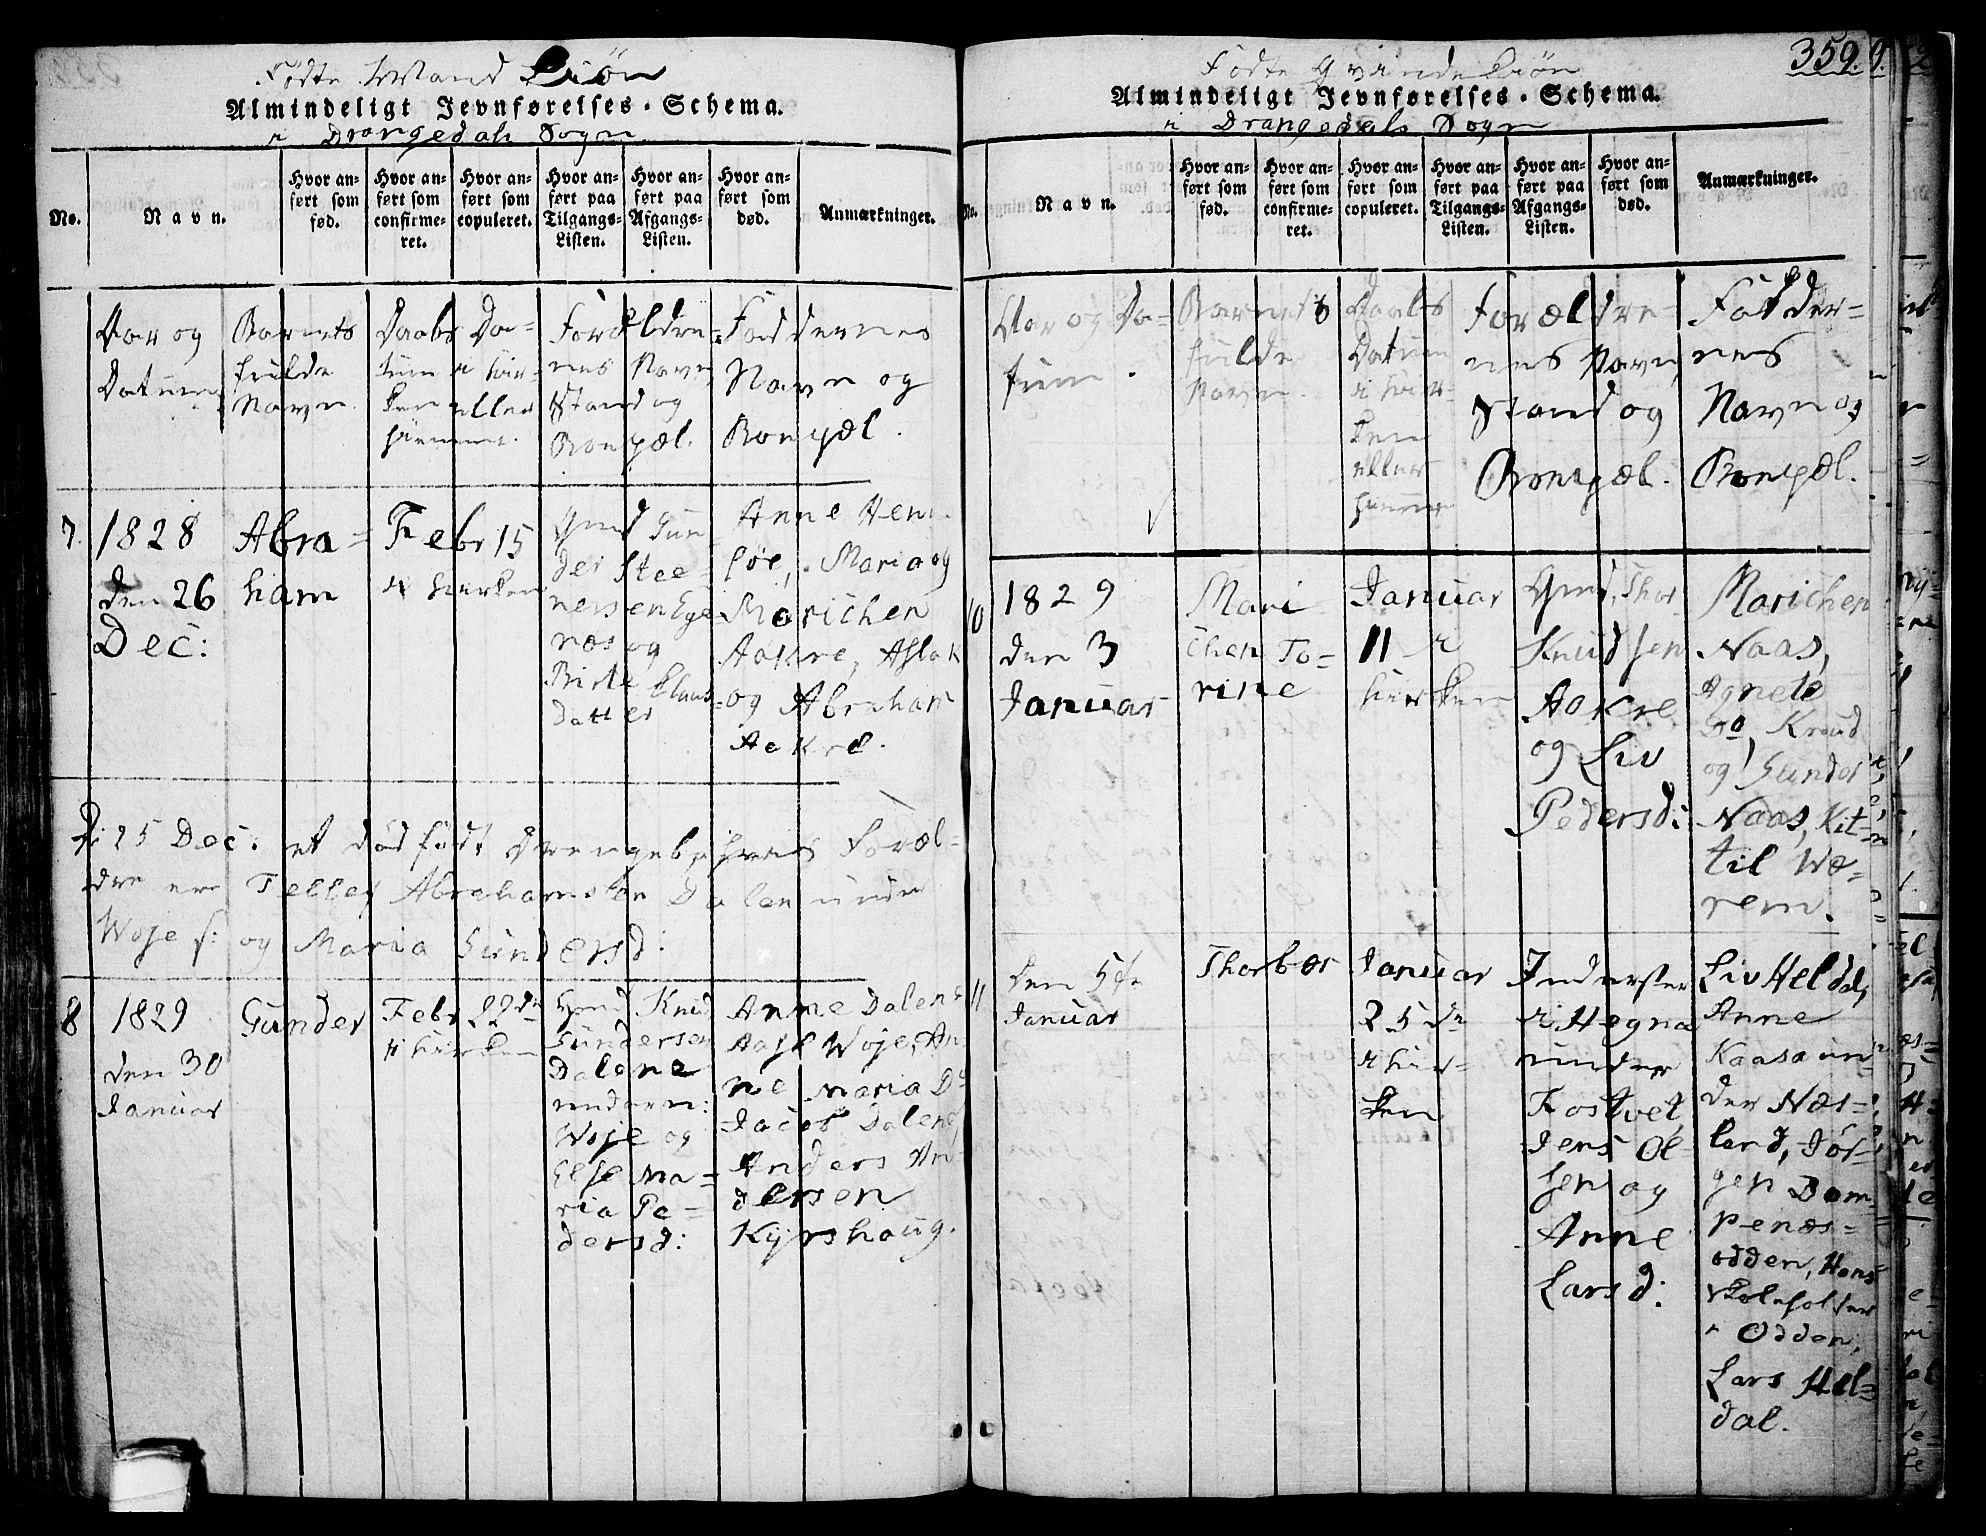 Fødte Mand Kiøn
Almindeligt Jevnførelses-Schema.
i Drangedals Sogn
No.
Navn.
Hvor an-
ført som
fød.
Hvor an-
ført som
confirme-
ret.
Hvor an-
ført som
copuleret.
Hvor an-
ført paa
Tilgangs-
Listen.
Hvor an-
ført paa
Afgangs-
Listen.
Hvor an-
ført som
død.
Anmærkninger.
Aar og
Datum
Barnets
fulde
Navn
Daabs Da-
tum i Kir-
ken eller
hiemme.
Forældre-
nes Navn
Stand og
Bopæl.
Faddernes
Navn og
Bopæl.
7.
1828
den 26
Dec:
Abra=
ham
Febr 15
i Kirken
Gmd Gun-
der Stee-
nersen Ege-
næs og
Birte Claus-
datter
Anne Hen-
løe, Maria og
Marichen
Aakre, Aslak
og Abraham
Aakre.
D: 25 Dec: et død født Drengeb: hvis Foræl-
dre ere Tellef Abrahamsen Dalen under
Woje og Maria Gundersd:
8
1829
den 30
Januar
Gunder
Febr 22de
i Kirken
Gmd Knud
Gundersen
Dalene
under
Woje og
Else Ma-
ria Pe-
dersd:
Anne Dalene
Aase Woje, An-
ne Maria Do
Jacob Dalene
Anders An-
dersen
Kyrshaug.
359.
Fødte Qvinde Kiøn
Almindeligt Jevnførelses-Schema.
i Drangedals Sogn
No.
Navn.
Hvor an-
ført som
fød.
Hvor an-
ført som
confirme-
ret.
Hvor an-
ført som
copuleret.
Hvor an-
ført paa
Tilgangs-
Listen.
Hvor an-
ført paa
Afgangs-
Listen.
Hvor an-
ført som
død.
Anmærkninger.
Aar og Da-
tum.
Barnets
fulde
Navn.
Daabs
Datum
i Kir-
ken
eller
hiemme
Forældre-
nes Navn
Stand og
Bopæl.
Fadder-
nes
Navn og
Bopæl.
10
1829
den 3
Januar
Mari
chen To=
rine
Januar
11 i
Kirken
Gmd, Thor
Knudsen
Aakre
og Liv
Pedersd:
Marichen
Naas,
Agnete
Do, Knud
og Gunder
Naas, Kit-
til Wæ-
rem.
11
den 5te
Januar
Thorbor
Januar
25de
i Kir-
ken
Inderster
i Hegna
under
Tostvet
Jens Ol-
sen og
Anne
Larsd:
Liv Heldal,
Anne
Kaasa un-
der Næs-
land, Jør-
gen Dom-
penæs-
odden, Hans
Skoleholder
i Odden,
Lars Hel-
dal.